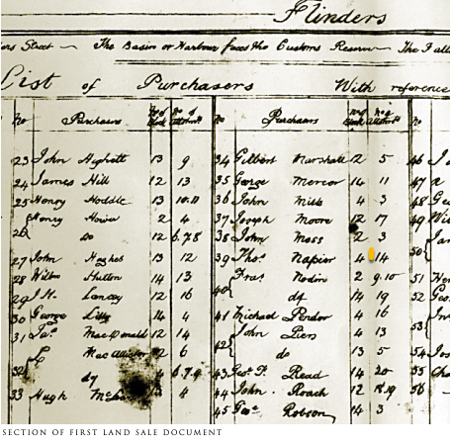 Flinders
Street — The Basin or Harbour faces the Customs Reserve — The Fall
List of Purchasers With reference
No Purchasers No of Block No of Allotmt No Purchasers No of Block No of Allotmt No
23 John Highett 13 9 34 Gilbert Marshall 12 5 46
24 James Hill 12 13 35 George Mercer 14 11 47
25 Henry Hoddle 13 10.11 36 John Mills 4 3 48 Geo
26 Henry Howie 2 4 37 Joseph Moore 12 17 49 Wil
do 12 6.7.8 38 John Moss 2 3 50 Jam
27 John Hughes 13 12 39 Thos Napier 4 14
28 Wilm Hutton 14 13 40 Fras Nodin 2 9.10 51 Hen
29 J.H. Lancey 12 16 do 14 19 52 Geo
30 George Lilly 4 4 41 Michael Pender 4 16 53
31 Jas MacDonald 12 14 42 John Piers 4 13
32 Mac Allister 12 6 do 13 5 54 Jos
do 4 6.7.9 43 Geo. P. Read 14 20 55 Cha
33 Hugh 4 44 John Roach 12 18.19 56
45 Geo Robson 14 3
SECTION OF FIRST LAND SALE DOCUMENT